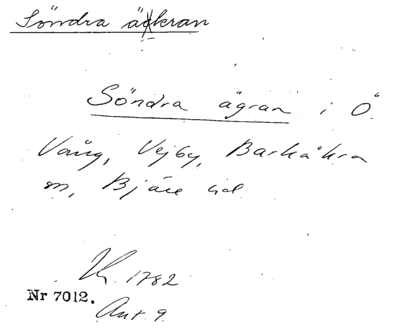 Söndra åkran
Söndra ägran i Ö.
Vång, Vejby, Barkåkra
sn, Bjäre hd
Uk. 1782
Nr 7012.
Ant. 9.